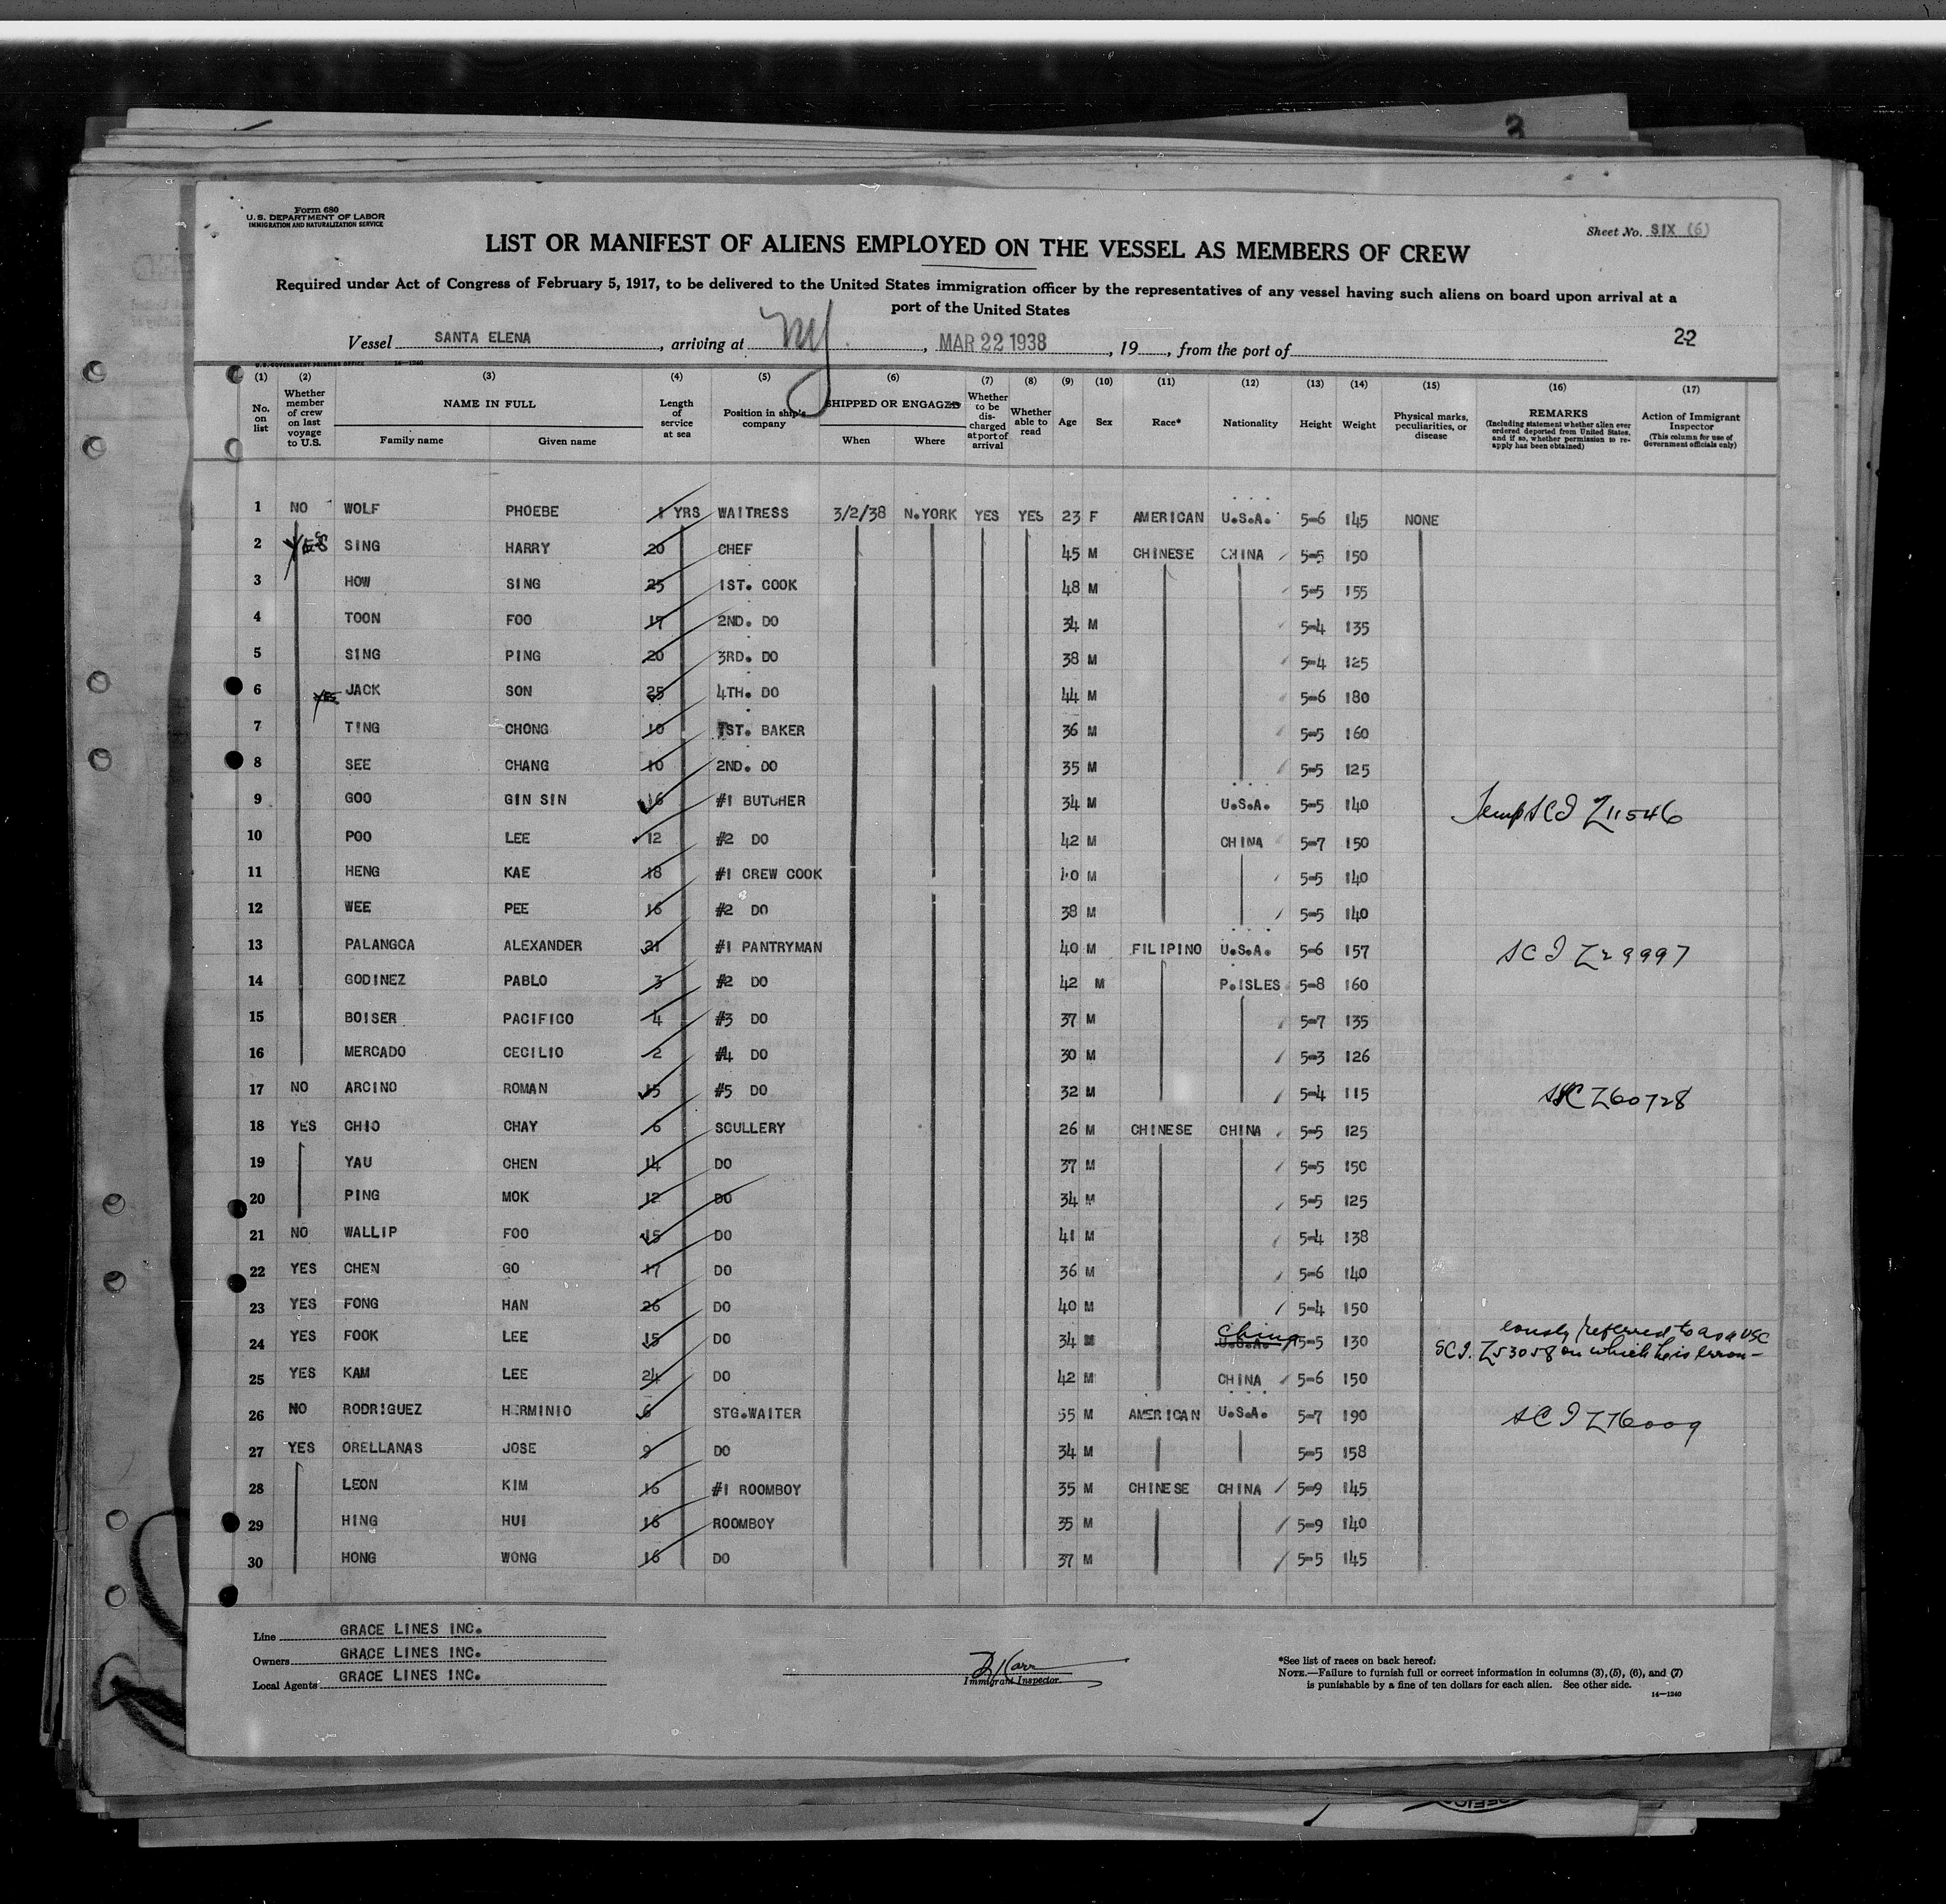 3
Form 680
U.S. DEPARTMENT OF LABOR
IMMIGRATION AND NATURALIZATION SERVICE
Sheet No. SIX (6)
LIST OR MANIFEST OF ALIENS EMPLOYED ON THE VESSEL AS MEMBERS OF CREW
Required under Act of Congress of February 5, 1917, to be delivered to the United States immigration officer by the representatives of any vessel having such aliens on board upon arrival at a
port of the United States
22
Vessel SANTA ELENA, arriving at NY, MAR 22 1938, 19, from the port of
U.S. GOVERNMENT PRINTING OFFICE 14—1240
(1) (2) (3) (4) (5) (6) (7) (8) (9) (10) (11) (12) (13) (14) (15) (16) (17)
No. on list Whether member of crew on last voyage to U.S. NAME IN FULL Family name Given name Length of service at sea Position in ship's company SHIPPED OR ENGAGED When Where Whether to be discharged at port of arrival Whether able to read Age Sex Race* Nationality Height Weight Physical marks, peculiarities, or disease REMARKS (Including statement whether alien ever ordered deported from United States, and if so, whether permission to reapply has been obtained) Action of Immigrant Inspector (This column for use of Government officials only)
1 NO WOLF PHOEBE 1 YRS WAITRESS 3/2/38 N.YORK YES YES 23 F AMERICAN U.S.A. 5-6 145 NONE
2 YES SING HARRY 20 CHEF 45 M CHINESE CHINA 5-5 150
3 HOW SING 25 1ST. COOK 48 M 5-5 155
4 TOON FOO 17 2ND. DO 34 M 5-4 135
5 SING PING 20 3RD. DO 38 M 5-4 125
6 YES JACK SON 25 4TH. DO 44 M 5-6 180
7 TING CHONG 10 1ST. BAKER 36 M 5-5 160
8 SEE CHANG 10 2ND. DO 35 M 5-5 125
9 GOO GIN SIN 16 #1 BUTCHER 34 M U.S.A. 5-5 140 Temp SCI Z11546
10 POO LEE 12 #2 DO 42 M CHINA 5-7 150
11 HENG KAE 18 #1 CREW COOK 40 M 5-5 140
12 WEE PEE 16 #2 DO 38 M 5-5 140
13 PALANGCA ALEXANDER 21 #1 PANTRYMAN 40 M FILIPINO U.S.A. 5-6 157 SCI Z29997
14 GODINEZ PABLO 3 #2 DO 42 M P.ISLES 5-8 160
15 BOISER PACIFICO 4 #3 DO 37 M 5-7 135
16 MERCADO CECILIO 2 #4 DO 30 M 5-3 126
17 NO ARCINO ROMAN 15 #5 DO 32 M 5-4 115 Z60728
18 YES CHIO CHAY 6 SCULLERY 26 M CHINESE CHINA 5-5 125
19 YAU CHEN 14 DO 37 M 5-5 150
20 PING MOK 12 DO 34 M 5-5 125
21 NO WALLIP FOO 15 DO 41 M 5-4 138
22 YES CHEN GO 17 DO 36 M 5-6 140
23 YES FONG HAN 26 DO 40 M 5-4 150
24 YES FOOK LEE 15 DO 34 M China U.S.A. 5-5 130 eously referred to as a USC
SCI. Z53058 on which he is erron-
25 YES KAM LEE 24 DO 42 M CHINA 5-6 150
26 NO RODRIGUEZ HERMINIO 6 STG.WAITER 55 M AMERICAN U.S.A. 5-7 190 SCI Z76009
27 YES ORELLANAS JOSE 9 DO 34 M 5-5 158
28 LEON KIM 16 #1 ROOMBOY 35 M CHINESE CHINA 5-9 145
29 HING HUI 16 ROOMBOY 35 M 5-9 140
30 HONG WONG 16 DO 37 M 5-5 145
Line GRACE LINES INC.
Owners GRACE LINES INC.
Local Agents GRACE LINES INC.
Immigrant Inspector.
*See list of races on back hereof.
NOTE.—Failure to furnish full or correct information in columns (3), (5), (6), and (7)
is punishable by a fine of ten dollars for each alien. See other side.
14—1240